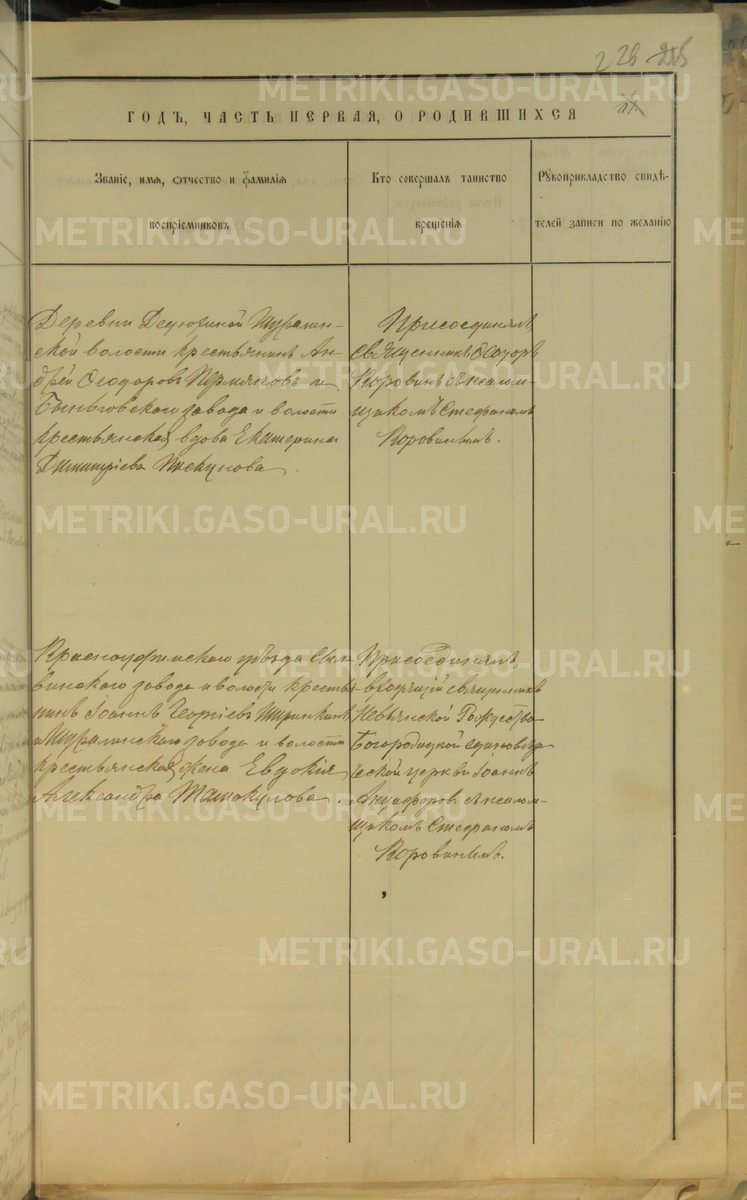 226
ГОДЪ, ЧАСТЬ ПЕРВАЯ, О РОДИВШИХСЯ
Званіе, имя, отчество и фамилія
воспріемниковъ
Кто совершалъ таинство
крещенія
Рукоприкладство свидѣ-
телей записи по желанію
Деревни Шуралин-
ской волости крестьянинъ Ан-
дрей Ѳеодоровъ Пермяковъ и
Быньговскаго завода и волости
крестьянская вдова Екатерина
Димитріева
Присоединялъ
священникъ Ѳеодоръ
Коровинъ съ псалом-
щикомъ Стефаномъ
Коровинымъ.
Красноуфимскаго уѣзда Сыл-
винскаго завода и волости кресть-
нинъ Іоаннъ Георгіевъ
и Шуралинскаго завода и волости
крестьянская жена Евдокія
Александра
Присоединялъ,
священникъ
Невьянской Рождество-
Богородицкой единовѣр-
ческой церкви Іоаннъ
съ псалом-
щикомъ Стефаномъ
Коровинымъ.
METRIKI.GASO-URAL.RU